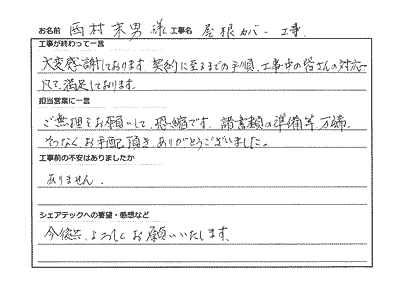 お名前 西村 末男 様 工事名 屋根カバー工事
工事が終わって一言
大変感謝しております。契約に至るまでの手順、工事中の皆さんの対応
凡て、満足しております。
担当営業に一言
ご無理をお願いして、恐縮です。諸書類の準備等、万端
そつなく、お手配頂き、ありがとうございました。
工事前の不安はありましたか
ありません。
シェアテックへの要望・感想など
今後共、よろしくお願いいたします。